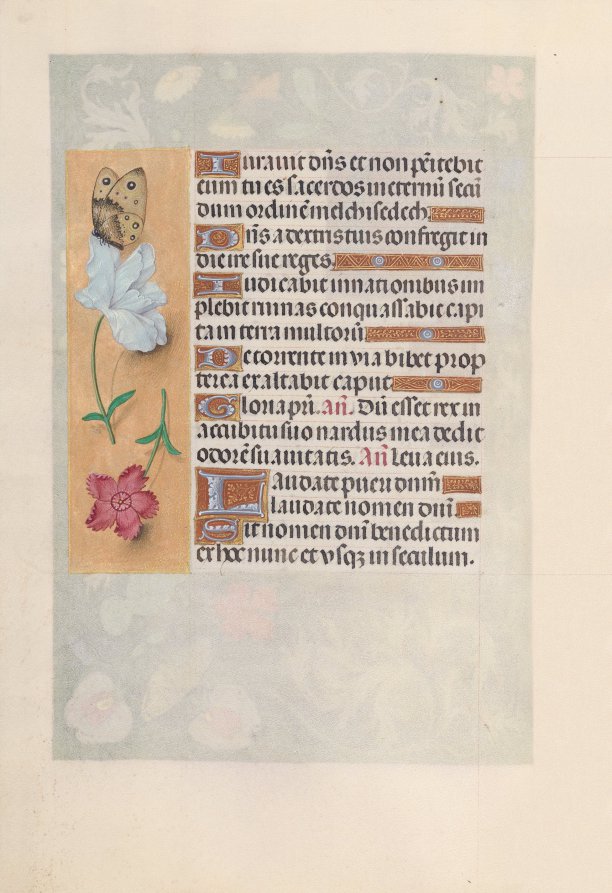 Iurauit dn̄s et non pēitebit
eum tu es sacerdos in eternū secū
dum ordinē melchisedech.
Dn̄s a dextris tuis confregit in
die ire sue reges.
Iudicabit in nationibus im
plebit ruinas conquassabit capi
ta in terra multorū
De torrente in via bibet prop
terea exaltabit caput
Gloria pr̄i. An̄. Dū esset rex in
accubitu suo nardus mea dedit
odorē suauitatis. An̄ Leua eius.
Laudate pueri dn̄m
laudate nomen dn̄i
Sit nomen dn̄i benedictum
ex hoc nunc et vsqꝫ in seculum.